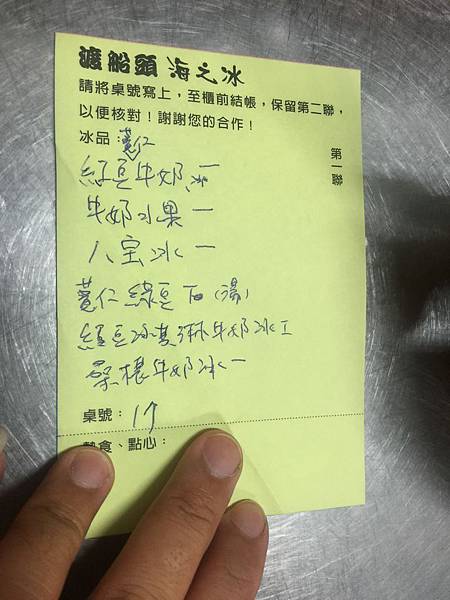 渡船頭 海之冰
請將桌號寫上，至櫃前結帳，保留第二聯，
以便核對！謝謝您的合作！
第一聯
冰品：薏仁
紅豆牛奶冰 一
牛奶水果 一
八宝冰 一
薏仁 綠豆 (湯)
紅豆 牛奶冰
桑椹牛奶冰 一
桌號：17
熱食、點心：